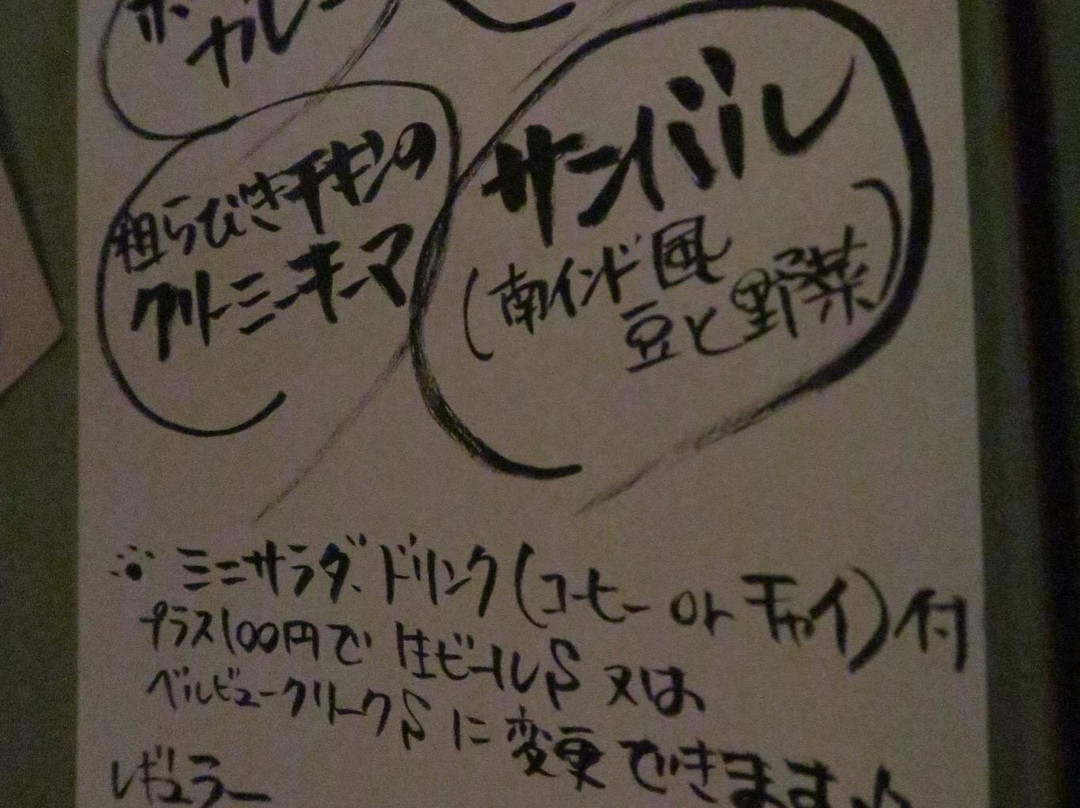 カレー
粗らびきチキンの
クリーミーキーマ
サンバル
(南インド風
豆と野菜)
※ミニサラダ、ドリンク(コーヒー or チャイ)付
プラス100円で 生ビールS 又は、
ベルビュークリークS に変更できます♪
レギュラー